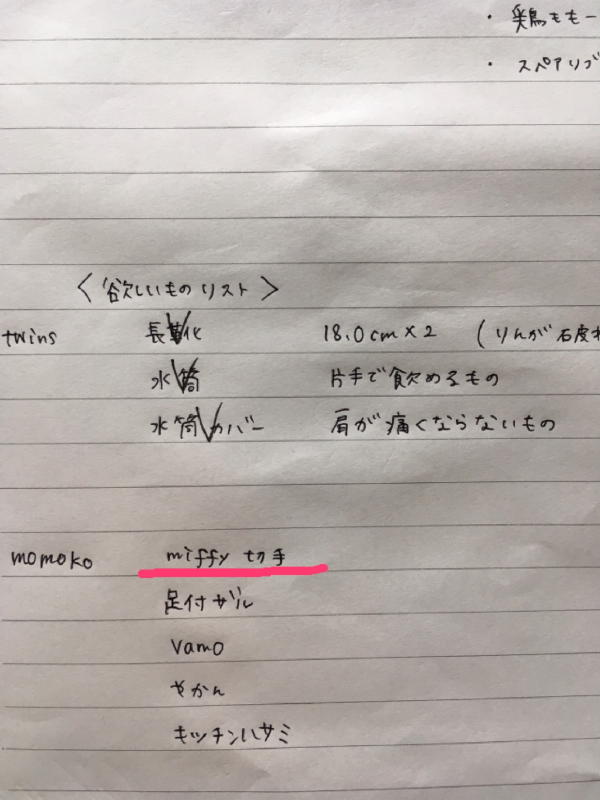 ・鶏もも
・スペアリブ
〈欲しいものリスト〉
twins 長靴 18.0cm×2 (りんが
水筒 片手で飲めるもの
水筒カバー 肩が痛くならないもの
momoko miffy 切手
足付ザル
vamo
やかん
キッチンハサミ